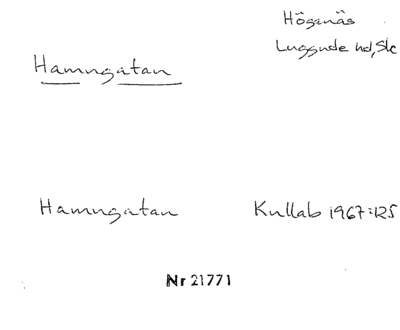 Höganäs
Luggude hd, Sk
Hamngatan
Hamngatan Kullab 1967:125
Nr 21771